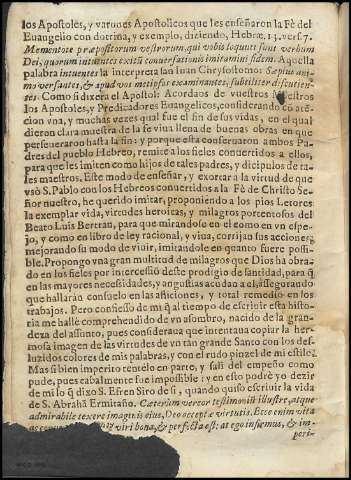 los Apostoles, y varones Apostolicos que les enseñaron la Fè del
Euangelio con dotrina, y exemplo, diziendo, Hebræ. 13. vers. 7.
Mementote præpositorum vestrorum, qui vobis loquuti sunt verbum
Dei, quorum intuentes exitũ conuersationis imitamini fidem. Aquella
palabra intuentes la interpreta san Iuan Chrysostomo: Sæpius ani
mo versantes, & apud vos metipsos examinantes, subtiliter discutien-
tes. Como si dixera el Apostol: Acordaos de vuestros Maestros
los Apostoles, y Predicadores Euangelicos, considerando con ate-
cion vna, y muchas vezes qual fue el fin de sus vidas, en el qual
dieron clara muestra de la fe viua llena de buenas obras en que
perseueraron hasta la fin: y porque esta conseruaron ambos Pa-
dres del pueblo Hebreo, remite a los fieles conuertidos a ellos,
para que les imiten como hijos de tales padres, y dicipulos de ta-
les maestros. Este modo de enseñar, y exortar a la virtud de que
vsò S. Pablo con los Hebreos conuertidos a la Fè de Christo Se-
ñor nuestro, he querido imitar, proponiendo a los pios Letores
la exemplar vida, virtudes heroicas, y milagros portentosos del
Beato Luis Bertran, para que mirandose en el como en vn espe-
jo, y como en libro de ley racional, y viua, corrijan sus acciones
mejorando su modo de viuir, imitandole en quanto fuere posi-
ble. Propongo vna gran multitud de milagros que Dios ha obra-
do en los fieles por intercessiõ deste prodigio de santidad, para q̃
en las mayores necessidades, y angustias acudan a el, assegurando
que hallaràn consuelo en las afliciones, y total remedio en los
trabajos. Pero confiesso de mi q̃ al tiempo de escriuir esta histo-
ria me hallè comprehendido de vn assombro, nacido de la gran-
deza del assunto, pues consideraua que intentaua copiar la her-
mosa imagen de las virtudes de vn tan grande Santo con los des-
luzidos colores de mis palabras, y con el rudo pinzel de mi estilo.
Mas si bien imperito tentèlo en parte, y sali del empeño como
pude, pues eabalmente fue impossible: y en esto podrè yo dezir
de mi lo q̃ dixo S. Efren Siro de si, quando quiso escriuir la vida
de S. Abrahã Ermitaño. Cæterùm vereor testimonij illustre, atque
admirabile texere imaginis eius, Deo acceptæ virtutis. Etce enim vita
viri bona, & perfecta est: at ego infirmus, & im-
peri-